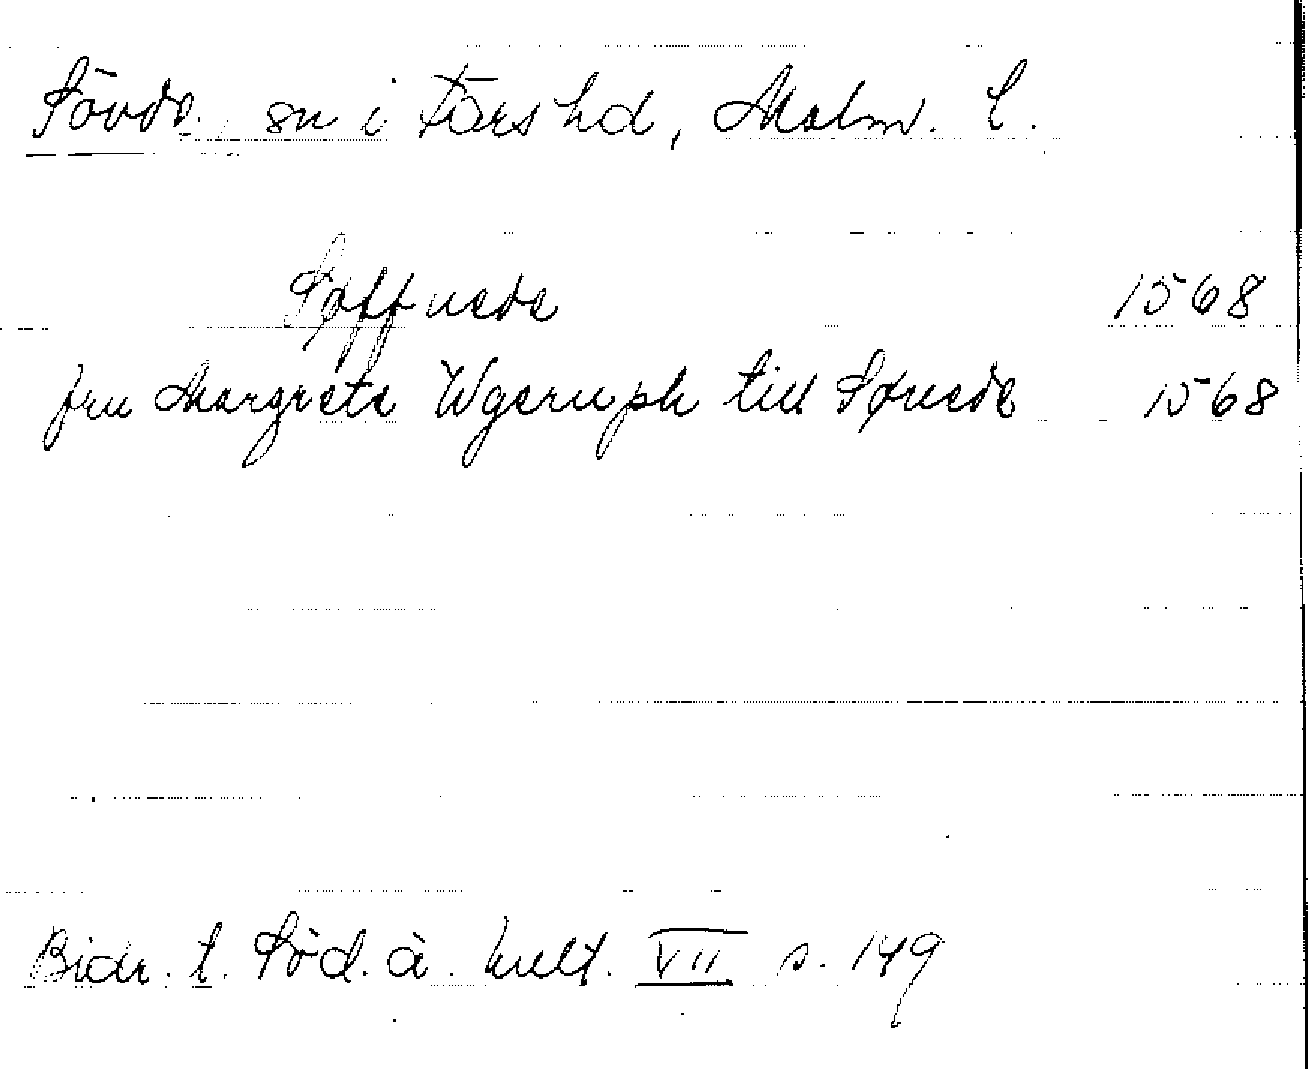 Sövde. sn i Färs hd, Malm. l.
Søffuede 1568
fru Margrete Wgeruph till Søuede 1568
Bidr. t. Söd. ä. kult. VII s. 149